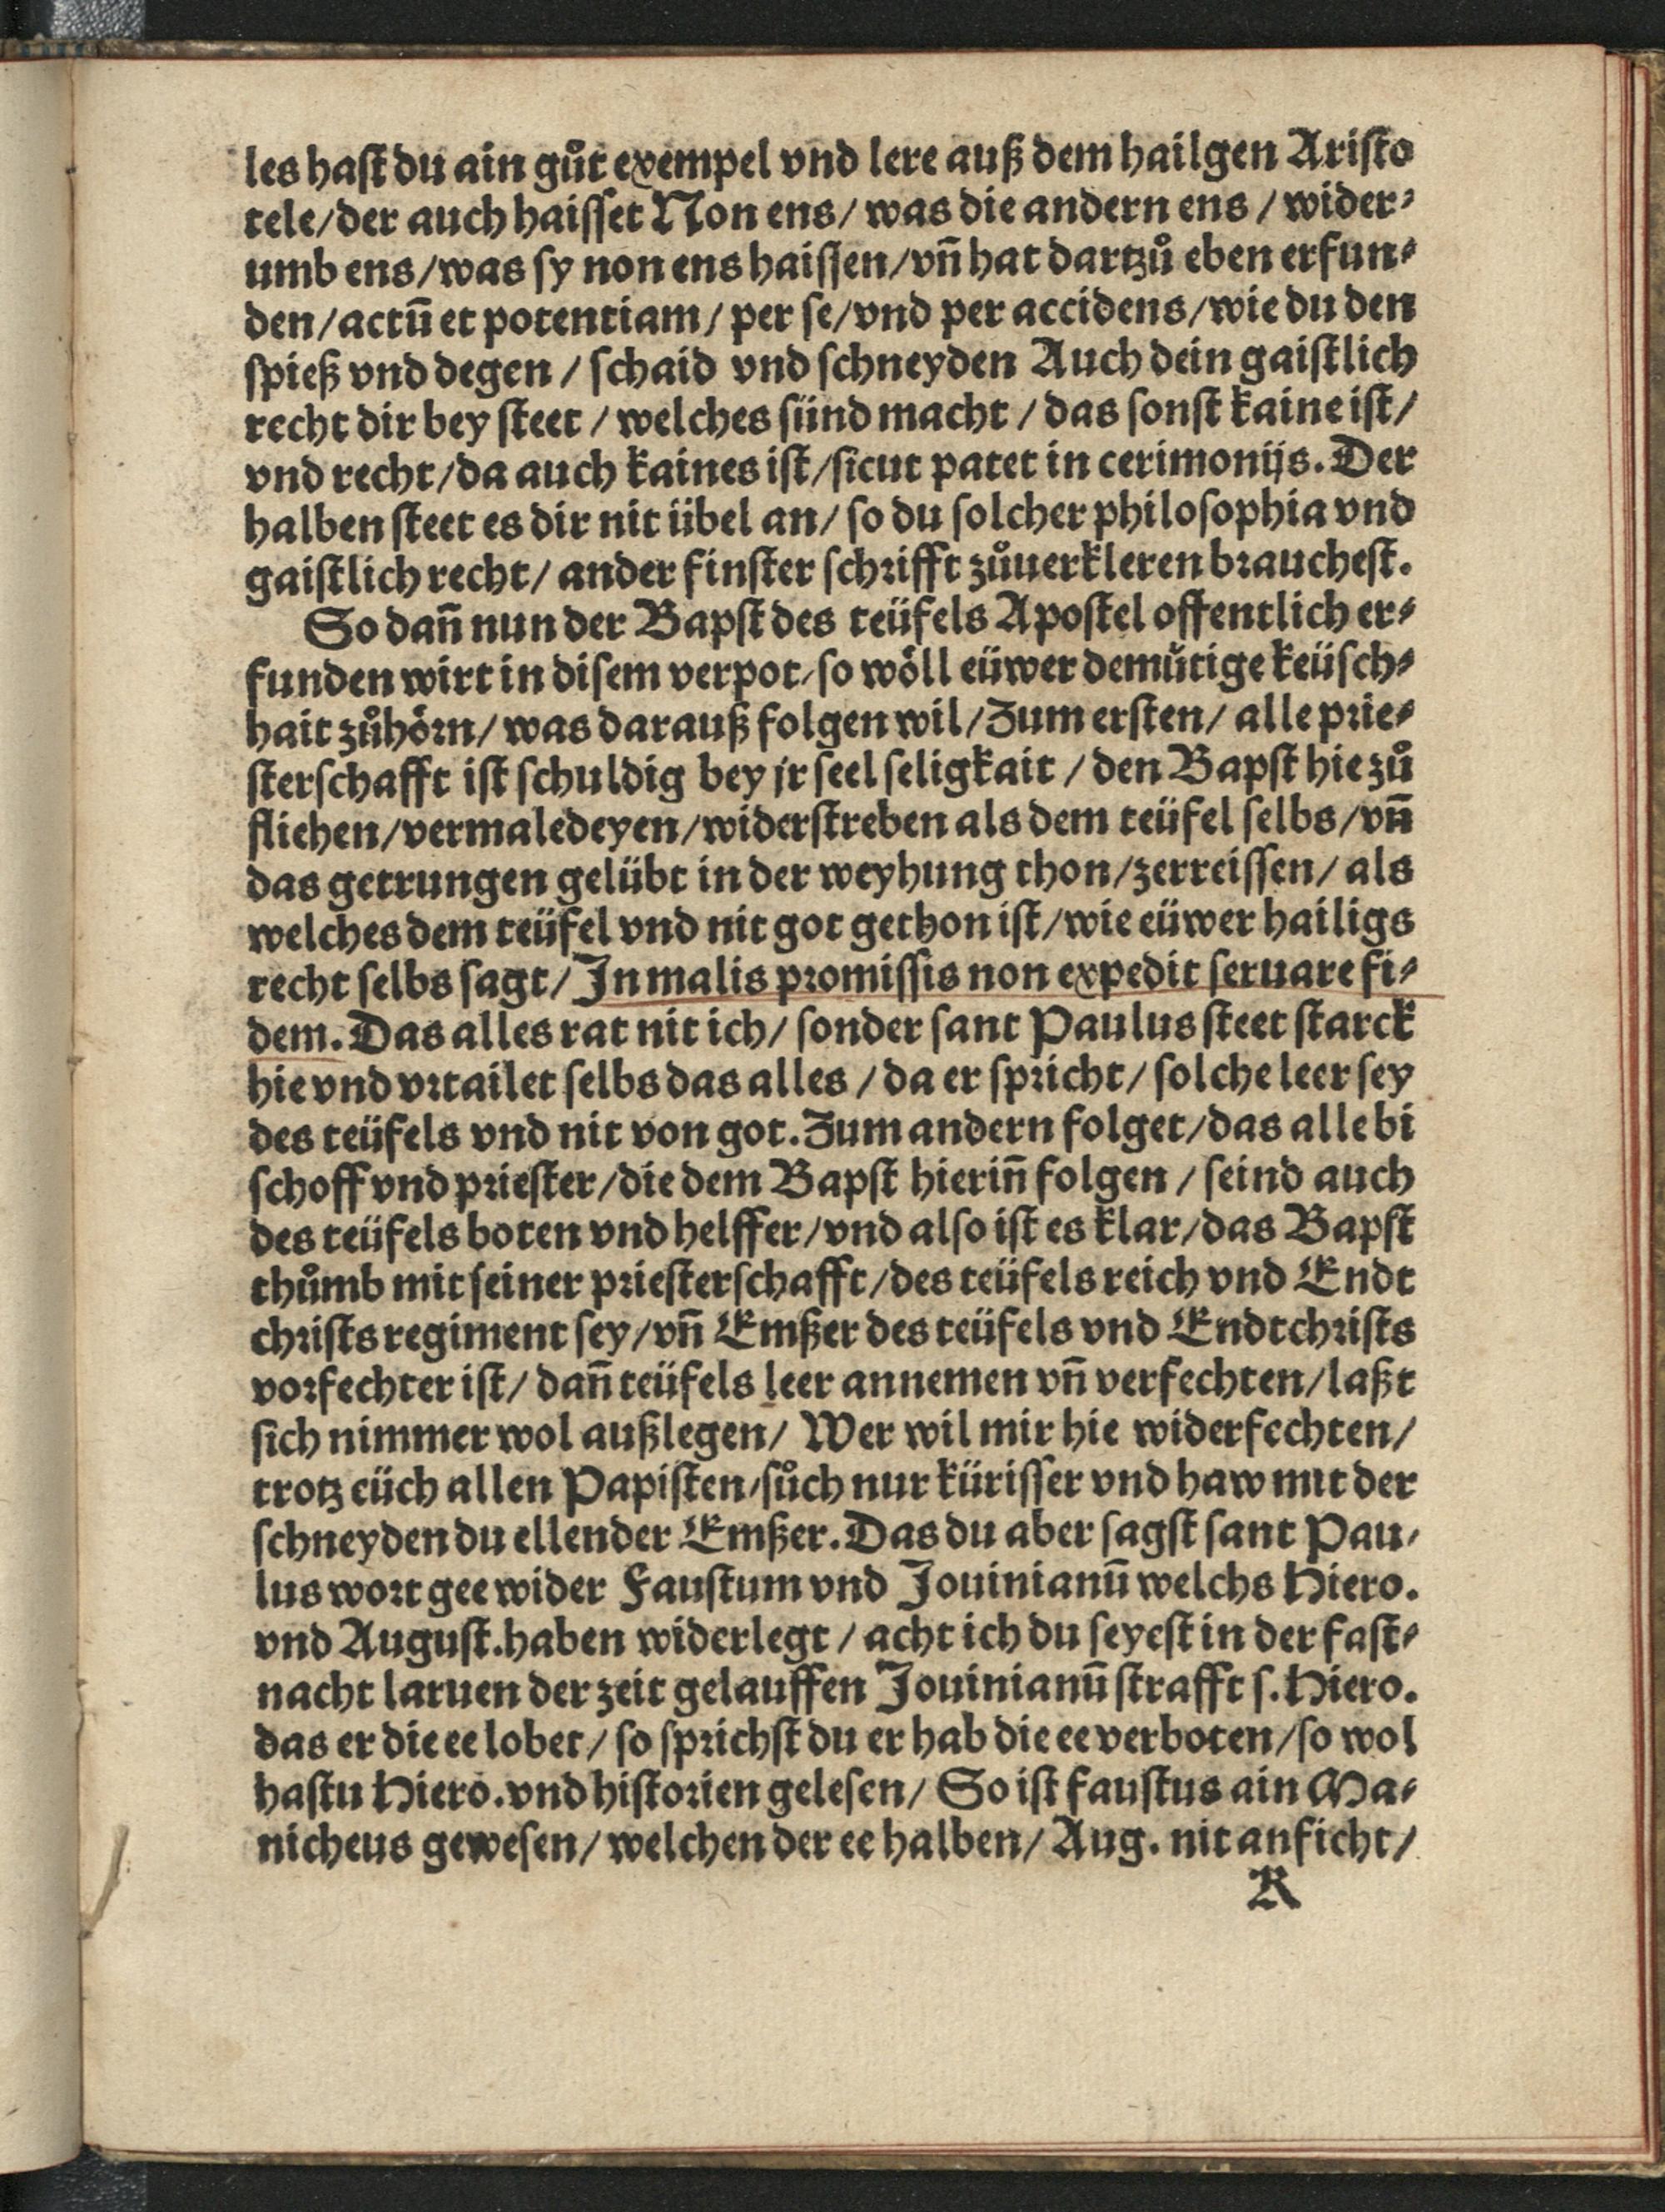 les haſt du ain gůt exempel vnd lere auß dem hailgen Ariſto
tele/der auch haiſſet Non ens/ was die andern ens / wider⸗
umb ens/was ſy non ens haiſſen/vn̄ hat dartzů eben erfun⸗
den/actū et potentiam/ per ſe/vnd per accidens/wie du den
ſpieß vnd degen / ſchaid vnd ſchneyden Auch dein gaiſtlich
recht dir bey ſteet / welches ſünd macht / das ſonſt kaine iſt/
vnd recht/da auch kaines iſt/ſicut patet in cerimonijs. Der
halben ſteet es dir nit übel an/ ſo du ſolcher philoſophia vnd
gaiſtlich recht/ ander finſter ſchrifft zůuerkleren braucheſt.
So dañ nun der Bapſt des teüfels Apoſtel offentlich er⸗
funden wirt in diſem verpot/ſo wöll eüwer demůtige keüſch⸗
hait zůhörn/ was darauß folgen wil/Zum erſten/ alle prie⸗
ſterſchafft iſt ſchuldig bey jr ſeel ſeligkait / den Bapſt hie zů
fliehen/vermaledeyen/widerſtreben als dem teüfel ſelbs/vn̄
das getrungen gelübt in der weyhung thon/zerreiſſen/ als
welches dem teüfel vnd nit got gethon iſt/wie eüwer hailigs
recht ſelbs ſagt/ In malis promiſſis non expedit ſeruare fi⸗
dem. Das alles rat nit ich/ ſonder ſant Paulus ſteet ſtarck
hie vnd vrtailet ſelbs das alles / da er ſpricht/ ſolche leer ſey
des teüfels vnd nit von got. Zum andern folget/das alle bi
ſchoff vnd prieſter/die dem Bapſt hierin̄ folgen / ſeind auch
des teüfels boten vnd helffer/vnd alſo iſt es klar/das Bapſt
thůmb mit ſeiner prieſterſchafft/des teüfels reich vnd Endt
chriſts regiment ſey/vn̄ Emßer des teüfels vnd Endtchriſts
vorfechter iſt/ dan̄ teüfels leer annemen vn̄ verfechten/laßt
ſich nimmer wol außlegen/ Wer wil mir hie widerfechten/
trotz eüch allen Papiſten/ſůch nur küriſſer vnd haw mit der
ſchneyden du ellender Emßer. Das du aber ſagſt ſant Pau/
lus wort gee wider Fauſtum vnd Jouinianū welchs Hiero.
vnd Auguſt. haben widerlegt / acht ich du ſeyeſt in der faſt⸗
nacht laruen der zeit gelauffen Jouinianū ſtrafft ſ. Hiero.
das er die ee lobet/ ſo ſprichſt du er hab die ee verboten/ſo wol
haſtu Hiero. vnd hiſtorien geleſen/ So iſt fauſtus ain Ma⸗
nicheus geweſen/ welchen der ee halben/ Aug. nit anficht/
R